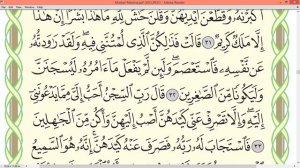 أَكْبَرْنَهُۥ وَقَطَّعْنَ أَيْدِيَهُنَّ وَقُلْنَ حَٰشَ لِلَّهِ مَا هَٰذَا بَشَرًا إِنْ هَٰذَآ
إِلَّا مَلَكٌ كَرِيمٌ ٣١ قَالَتْ فَذَٰلِكُنَّ ٱلَّذِى لُمْتُنَّنِى فِيهِ وَلَقَدْ رَٰوَدتُّهُۥ
عَن نَّفْسِهِۦ فَٱسْتَعْصَمَ وَلَئِن لَّمْ يَفْعَلْ مَآ ءَامُرُهُۥ لَيُسْجَنَنَّ
وَلَيَكُونًا مِّنَ ٱلصَّٰغِرِينَ ٣٢ قَالَ رَبِّ ٱلسِّجْنُ أَحَبُّ إِلَىَّ مِمَّا يَدْعُونَنِىٓ
إِلَيْهِ وَإِلَّا تَصْرِفْ عَنِّى كَيْدَهُنَّ أَصْبُ إِلَيْهِنَّ وَأَكُن مِّنَ ٱلْجَٰهِلِينَ
٣٣ فَٱسْتَجَابَ لَهُۥ رَبُّهُۥ فَصَرَفَ عَنْهُ كَيْدَهُنَّ إِنَّهُۥ هُوَ ٱلسَّمِيعُ